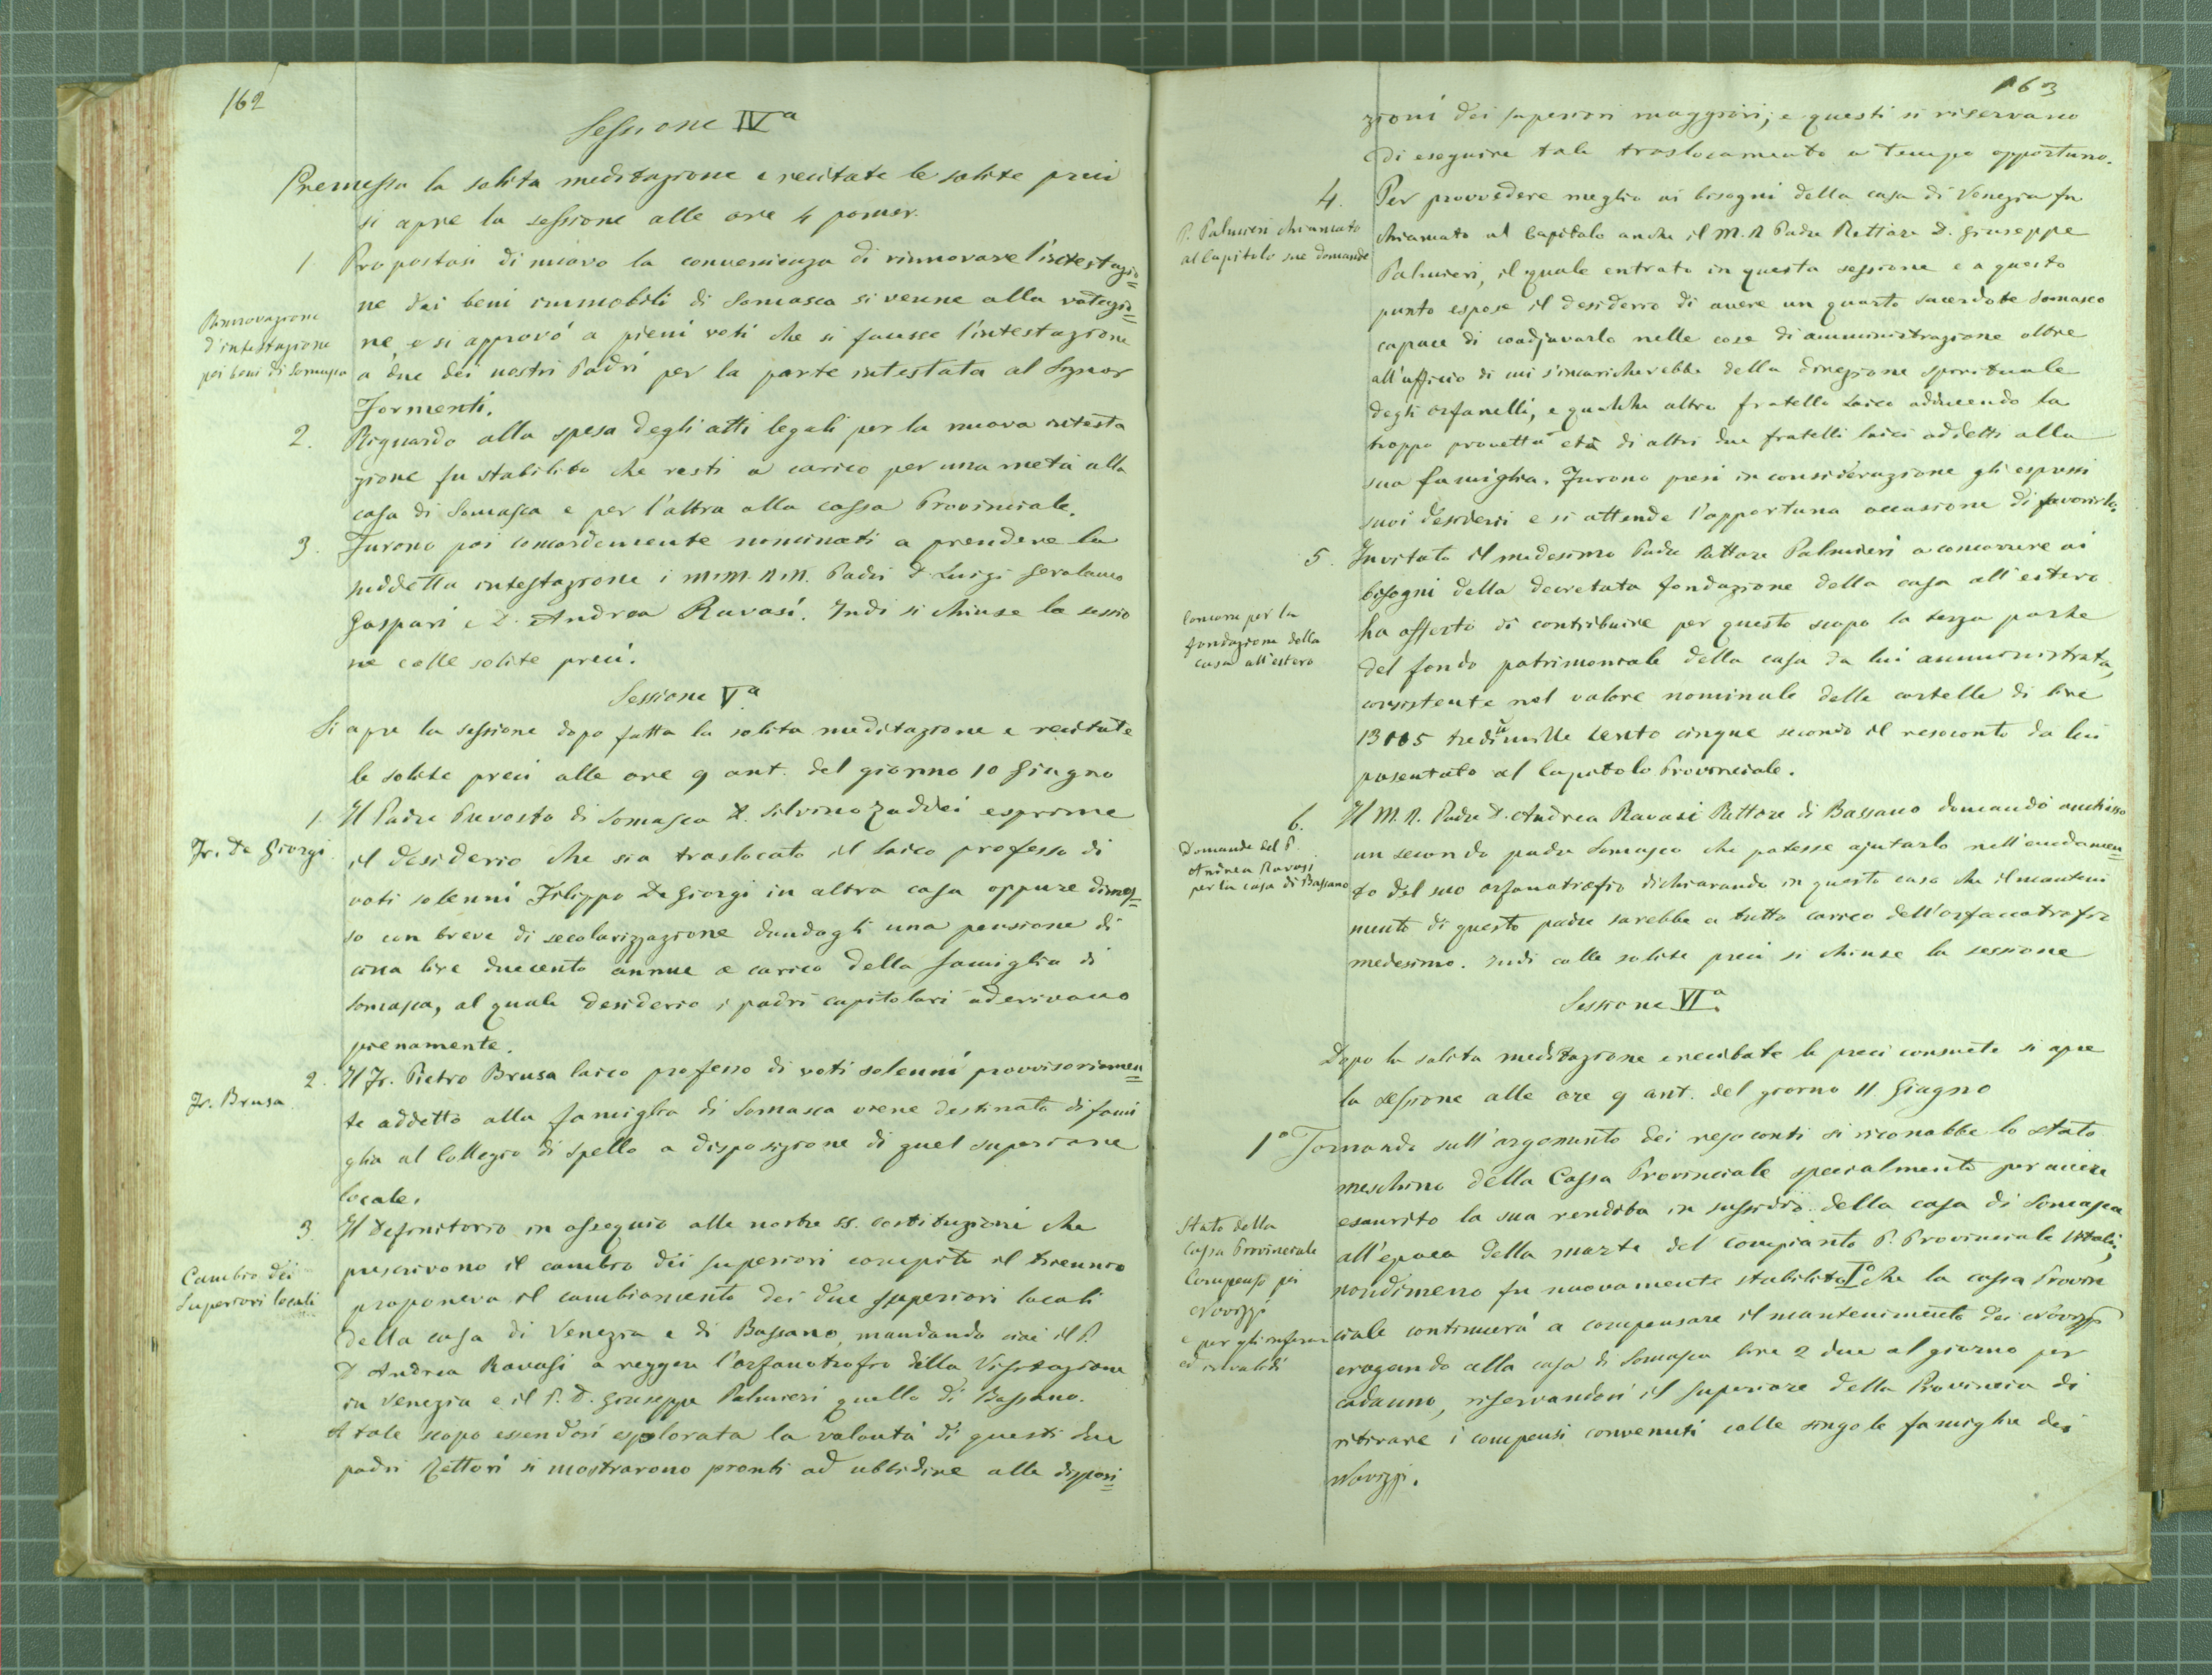 162
Sessione IVª
Premessa la solita meditazione e recitate le solite preci
si apre la sessione alle ore 4 pomer.
1 Propostasi di nuovo la convenienza di rinnovare l'intestazio=
ne dei beni immobili di Somasca si venne alla votazio=
ne, e si approvò a pieni voti che si facesse l'intestazione
a due dei nostri Padri per la parte intestata al Signor
Formenti.
Rinnovazione
d'intestazione
pei beni di Somasca
2. Riguardo alla spesa degli atti legali per la nuova intesta
zione fu stabilito che resti a carico per una metà alla
casa di Somasca e per l'altra alla cassa Provinciale.
3. Furono poi concordemente nominati a prendere la
suddetta intestazione i MM. RR. Padri D. Luigi Gerolamo
Gaspari e D. Andrea Ravasi. Indi si chiuse la sessio
ne colle solite preci.
Sessione Vª
Si apre la sessione dopo fatta la solita meditazione e recitate
le solite preci alle ore 9 ant. del giorno 10 Giugno
1 Il Padre Prevosto di Somasca D. Silvino Zaddei esprime
il desiderio che sia traslocato il laico professo di
voti solenni Filippo De Giorgi in altra casa oppure dimes=
so con breve di secolarizzazione dandogli una pensione di
circa lire duecento annue a carico della famiglia di
Somasca, al quale desiderio i padri capitolari aderivano
pienamente.
Fr. De Giorgi
2. Il Fr. Pietro Brusa laico professo di voti solenni provvisoriamen=
te addetto alla famiglia di Somasca viene destinato di fami
glia al Collegio di Spello a disposizione di quel superiore
locale.
Fr. Brusa
3 Il Definitorio in ossequio alle nostre SS. Costituzioni che
prescrivono il cambio dei superiori compito il triennio
proponeva il cambiamento dei due superiori locali
della casa di Venezia e di Bassano, mandando cioè il P.
D Andrea Ravasi a reggere l'orfanotrofio della Visitazione
in Venezia e il P. D. Giuseppe Palmieri quello di Bassano.
A tale scopo essendosi esplorata la volontà di questi due
padri Rettori si mostrarono pronti ad ubbidire alle disposi=
Cambio dei
Superiori locali
163
zioni dei superiori maggiori; e questi si riservano
di eseguire tale traslocamento a tempo opportuno.
4. Per provvedere meglio ai bisogni della casa di Venezia fu
chiamato al Capitolo anche il M. R Padre Rettore D. Giuseppe
Palmieri, il quale entrato in questa sessione e a questo
punto espose il desiderio di avere un quarto sacerdote Somasco
capace di coadjuvarlo nelle cose di amministrazione oltre
all'ufficio di cui s'incaricherebbe della direzione spirituale
degli orfanelli, e qualche altro fratello laico adducendo la
troppo provetta età di altri due fratelli laici addetti alla
sua famiglia. Furono presi in considerazione gli espressi
suoi desiderii e si attende l'opportuna occasione di favorirlo.
P. Palmieri chiamato
al Capitolo sue domande
5. Invitato il medesimo Padre Rettore Palmieri a concorrere ai
bisogni della decretata fondazione della casa all'estero
ha offerto di contribuire per questo scopo la terza parte
del fondo patrimoniale della casa da lui amministrata,
consistente nel valore nominale delle cartelle di lire
13105 tredicimille cento cinque secondo il resoconto da lui
presentato al Capitolo Provinciale.
Concorre per la
fondazione della
casa all'estero
6. Il M. R. Padre D. Andrea Ravasi Rettore di Bassano domandò anch'esso
un secondo padre Somasco che potesse ajutarlo nell'andamen=
to del suo orfanotrofio dichiarando in questo caso che il manteni
mento di questo padre sarebbe a tutto carico dell'orfanotrofio
medesimo. Indi colle solite preci si chiuse la sessione
Domande del P.
Andrea Ravasi
per la casa di Bassano
Sessione VIª
Dopo la solita meditazione e recitate le preci consuete si apre
la sessione alle ore 9 ant. del giorno 11 Giugno
1º Tornando sull'argomento dei resoconti si riconobbe lo stato
meschino della Cassa Provinciale specialmente per avere
esaurito la sua rendita in sussidio della casa di Somasca
all'epoca della morte del compianto P. Provinciale Vitali;
nondimeno fu nuovamente stabilito Iº che la cassa Provin
ciale continuerà a compensare il mantenimento dei Novizzi
erogando alla casa di Somasca lire 2 due al giorno per
cadauno, riservandosi il superiore della Provincia di
ritirare i compensi convenuti colle singole famiglie dei
Novizzi.
Stato della
Cassa Provinciale
Compenso pei
Novizzi
e per gli infermi
ed invalidi